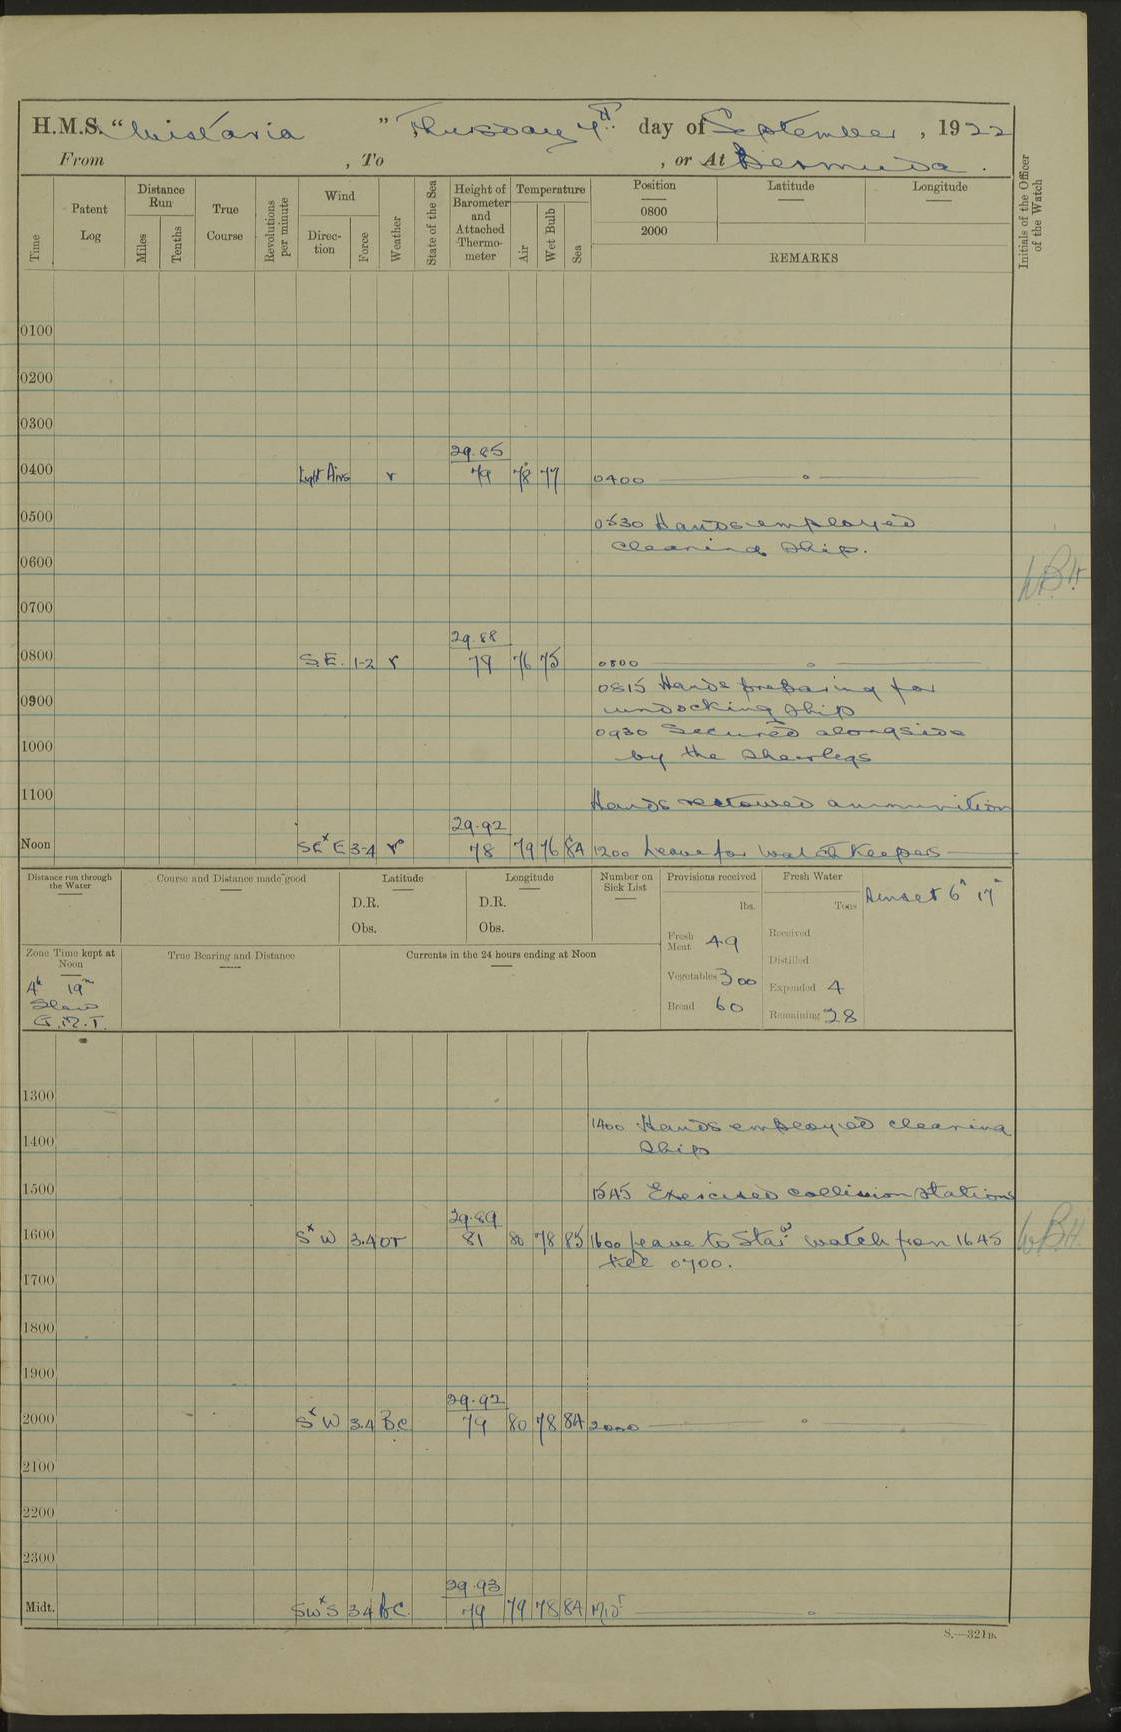 H.M.S. "Wistaria" Thursday 7th day of September, 1922
From , To , or At Bermuda.
Time
Patent Log
Distance Run
Miles
Tenths
True Course
Revolutions per minute
Wind
Direction
Force
Weather
State of the Sea
Height of Barometer and Attached Thermometer
Temperature
Air
Wet Bulb
Sea
Position
0800
2000
Latitude
Longitude
REMARKS
Initials of the Officer of the Watch
0100
0200
0300
29.85
0400 Light Airs r 79 78 77 0400
0500 0530 Hands employed
cleaning ship.
0600
W.B.H.
0700
29.88
0800 S.E. 1-2 r 79 76 75 0800
0815 Hands preparing for
0900 undocking ship
0930 Secured alongside
1000 by the shearlegs
1100 Hands restowed ammunition
29.92
Noon SExE 3-4 r 78 79 76 84 1200 Leave for watch keepers
Distance run through the Water
Course and Distance made good
Latitude
D.R.
Obs.
Longitude
D.R.
Obs.
Number on Sick List
Provisions received
lbs.
Fresh Meat 49
Vegetables 300
Bread 60
Fresh Water
Tons
Received
Distilled
Expended 4
Remaining 28
Sunset 6h 17m
Zone Time kept at Noon
4h 19m
Slow
G.M.T.
True Bearing and Distance
Currents in the 24 hours ending at Noon
1300
1400 Hands employed cleaning
1400 ship
1500 1545 Exercised collision stations
29.89
1600 SxW 3.4 or 81 80 78 85 1600 Leave to Starbd watch from 1645
till 0700.
W.B.H.
1700
1800
1900
29.92
2000 SxW 3.4 B.C. 79 80 78 84 2000
2100
2200
2300
29.93
Midt. SWxS 34 B.C. 79 79 78 84 Midt
S.—321B.